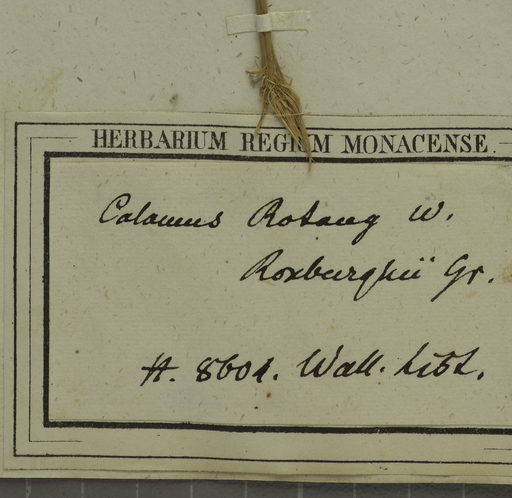 HERBARIUM REGIUM MONACENSE.
Calamus Rotang W.
Roxburghii Gr.
H. 8604. Wall.